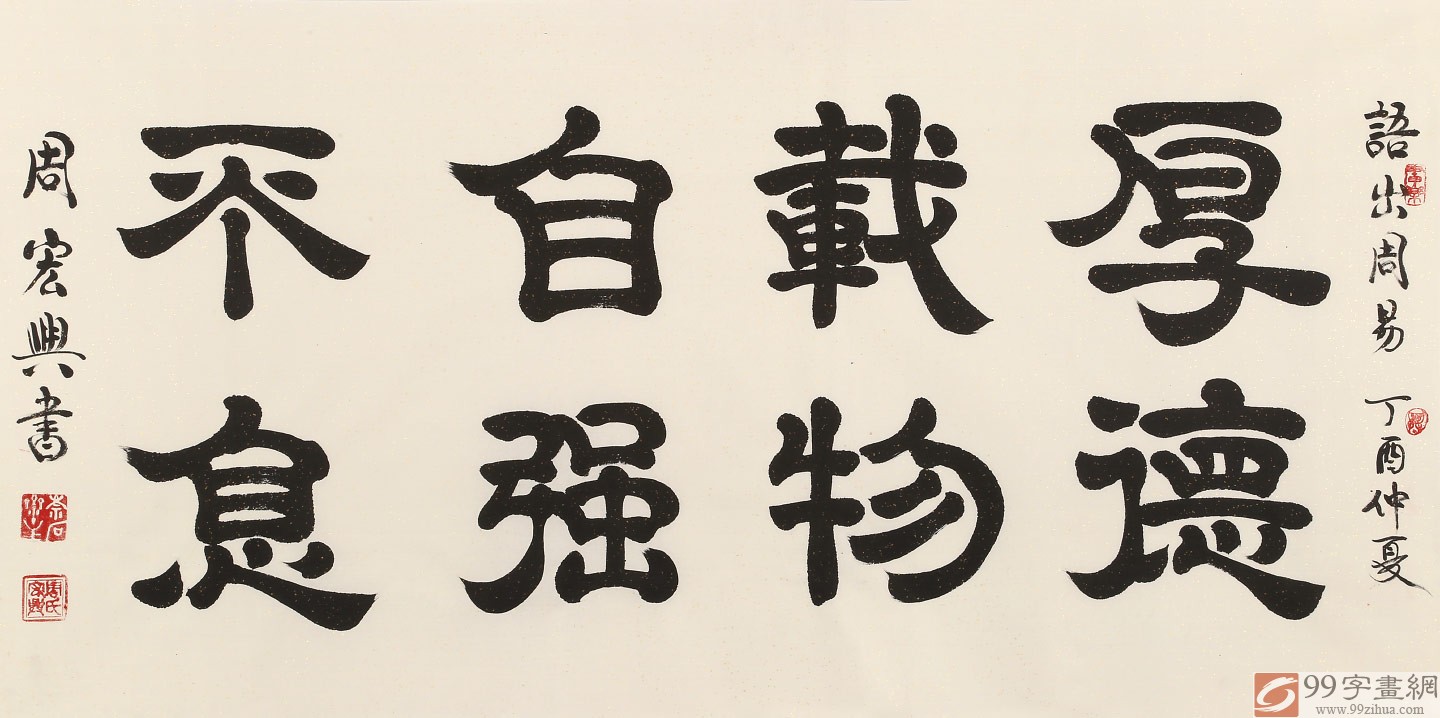 語出周易 丁酉仲夏
厚德
載物
自强
不息
周宏興書
99字畫網
www.99zihua.com